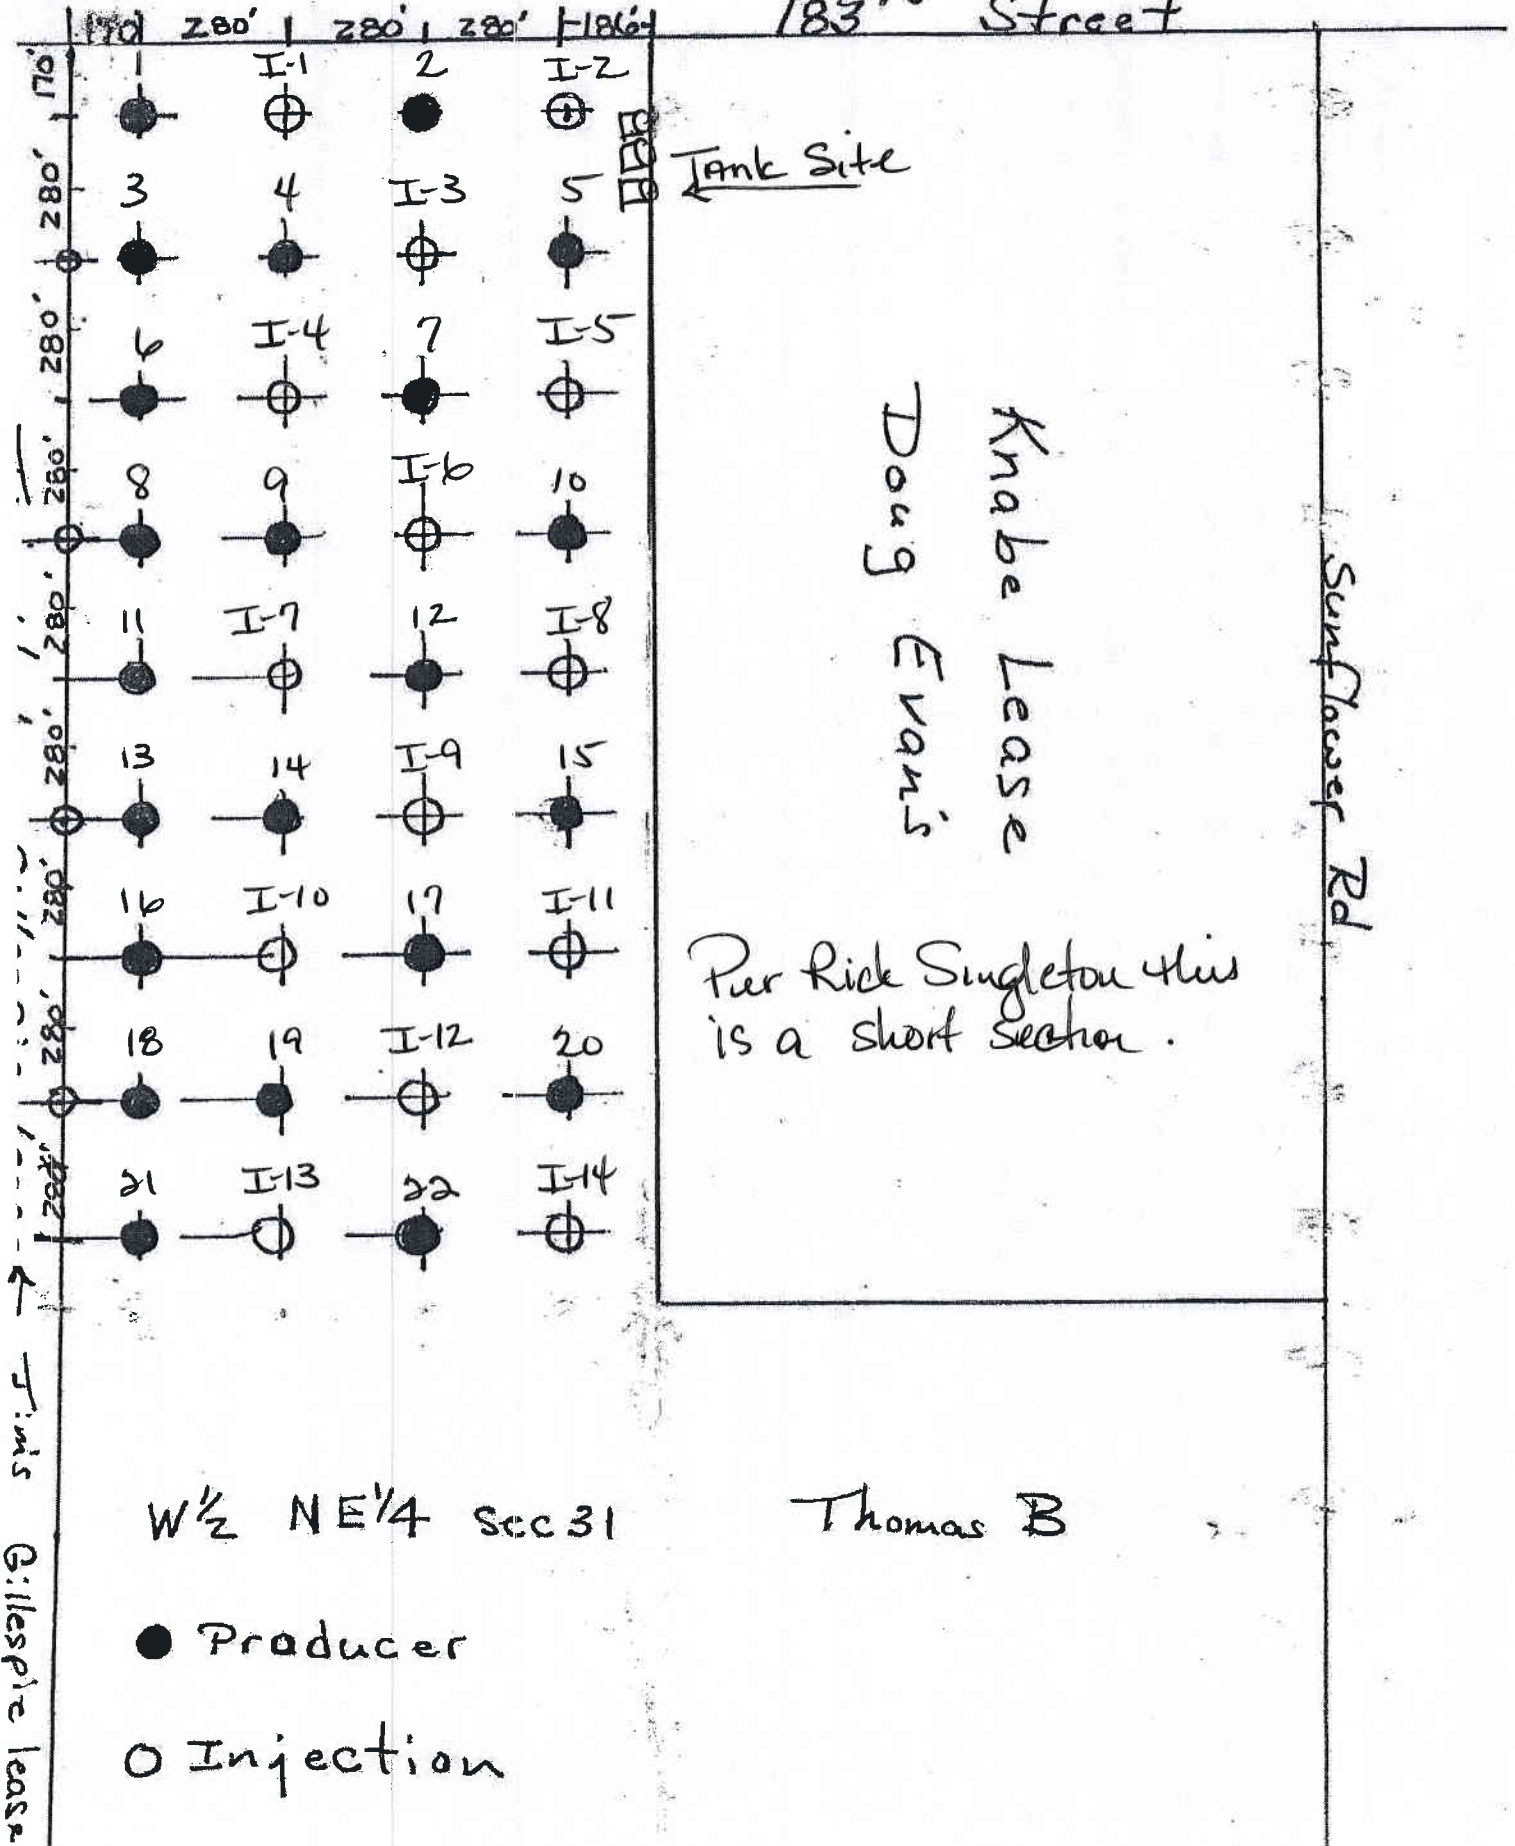 280' 280' 280' 186' 183rd Street
170'
1 I-1 2 I-2
Tank Site
280'
3 4 I-3 5
280'
6 I-4 7 I-5
280'
8 9 I-6 10
280'
11 I-7 12 I-8
280'
13 14 I-9 15
280'
16 I-10 17 I-11
280'
18 19 I-12 20
280'
21 I-13 22 I-14
Knabe Lease
Doug Evan's
Sunflower Rd
Per Rick Singleton this
is a short section.
Jim's Gillespie lease
W 1/2 NE 1/4 Sec 31
Thomas B
● Producer
O Injection